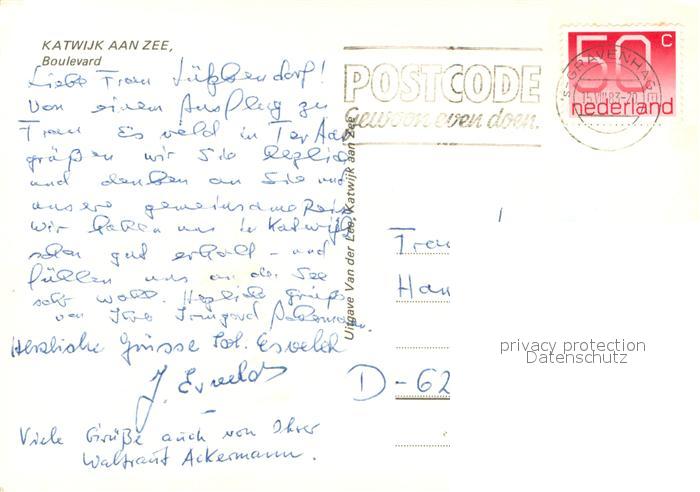 KATWIJK AAN ZEE,
Boulevard
Liebe Frau Lützkendorf!
Von einem Ausflug zu
Frau Esveld in Ter Aar
grüßen wir Sie herzlich
und denken an Sie und
unsere gemeinsame Reise
Wir haben uns in Katwijk
schon gut erholt - und
fühlen uns an der See
sehr wohl. Herzliche Grüße
von Ihrer Irmgard Ackermann.
Herzliche Grüsse Joh. Esveld
J. Esveld
Viele Grüße auch von Ihrer
Waltraut Ackermann.
Uitgave Van der Lee, Katwijk aan zee
POSTCODE
Gewoon even doen.
'S-GRAVENHAGE
50 c
nederland
Frau
Han
D-62
privacy protection
Datenschutz